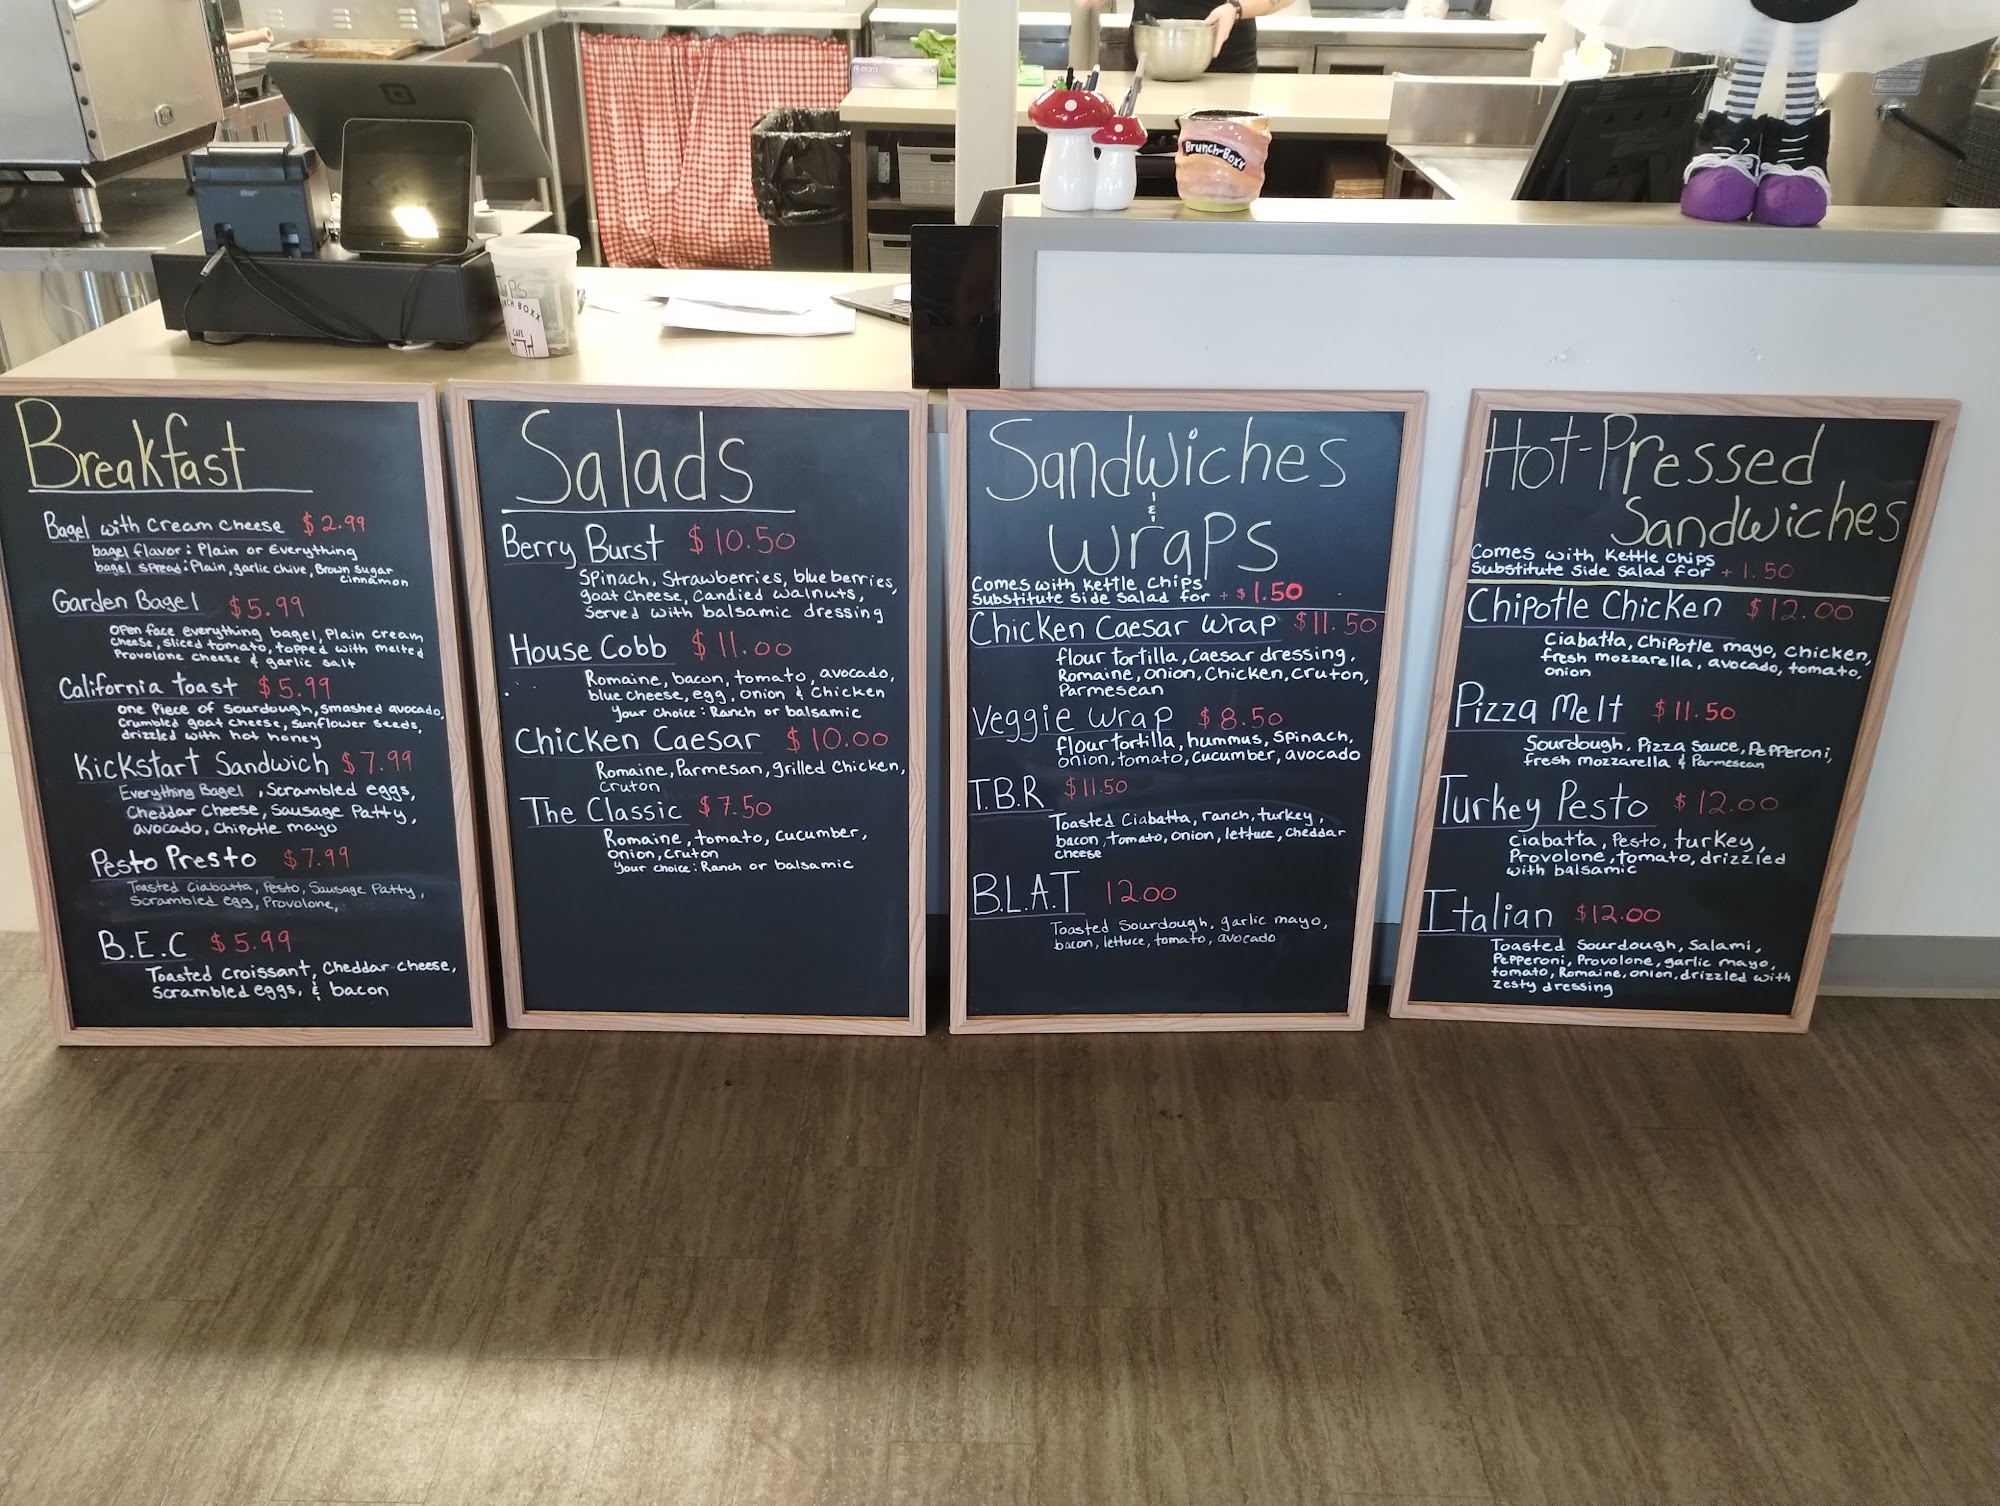 Brunch-Boxx
Tips
CH BOXX
CAFE
Breakfast
Bagel with cream cheese $2.99
bagel flavor: Plain or Everything
bagel spread: Plain, garlic chive, Brown sugar
cinnamon
Garden Bagel $5.99
Open face everything bagel, Plain cream
cheese, sliced tomato, topped with melted
Provolone cheese & garlic salt
California toast $5.99
one piece of sourdough, smashed avocado,
crumbled goat cheese, sunflower seeds,
drizzled with hot honey
Kickstart Sandwich $7.99
Everything Bagel, Scrambled eggs,
Cheddar Cheese, Sausage Patty,
avocado, Chipotle mayo
Pesto Presto $7.99
Toasted Ciabatta, Pesto, Sausage Patty,
Scrambled egg, Provolone,
B.E.C $5.99
Toasted croissant, Cheddar cheese,
Scrambled eggs, & bacon
Salads
Berry Burst $10.50
Spinach, Strawberries, blueberries,
goat cheese, Candied walnuts,
Served with balsamic dressing
House Cobb $11.00
Romaine, bacon, tomato, avocado,
blue cheese, egg, onion & Chicken
Your choice: Ranch or balsamic
Chicken Caesar $10.00
Romaine, Parmesan, grilled Chicken,
Cruton
The Classic $7.50
Romaine, tomato, cucumber,
onion, cruton
Your choice: Ranch or balsamic
Sandwiches
&
Wraps
Comes with Kettle Chips
Substitute Side Salad for +$1.50
Chicken Caesar Wrap $11.50
flour tortilla, Caesar dressing,
Romaine, onion, Chicken, Cruton,
Parmesean
Veggie Wrap $8.50
flour tortilla, hummus, Spinach,
onion, tomato, cucumber, avocado
T.B.R $11.50
Toasted Ciabatta, ranch, turkey,
bacon, tomato, onion, lettuce, cheddar
cheese
B.L.A.T 12.00
Toasted Sourdough, garlic mayo,
bacon, lettuce, tomato, avocado
Hot-Pressed
Sandwiches
Comes with Kettle Chips
Substitute Side Salad for +1.50
Chipotle Chicken $12.00
Ciabatta, Chipotle mayo, chicken,
fresh mozzarella, avocado, tomato,
onion
Pizza Melt $11.50
Sourdough, Pizza sauce, Pepperoni,
fresh mozzarella & Parmesean
Turkey Pesto $12.00
Ciabatta, Pesto, turkey,
Provolone, tomato, drizzled
with balsamic
Italian $12.00
Toasted Sourdough, Salami,
Pepperoni, Provolone, garlic mayo,
tomato, Romaine, onion, drizzled with
zesty dressing